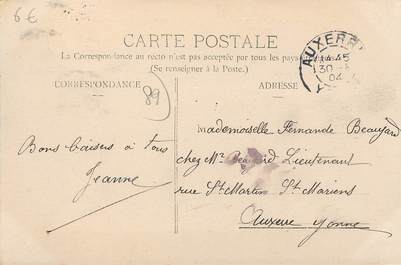 6€
CARTE POSTALE
La Correspondance au recto n'est pas acceptée par tous les pays
(Se renseigner à la Poste.)
CORRESPONDANCE
ADRESSE
89
AUXERR
14 45
30
04
Bons baisers à tous
Jeanne
Mademoiselle Fernande Beaujard
chez Mr Beaujard Lieutenant
rue St Martin St Mariens
Auxerre Yonne